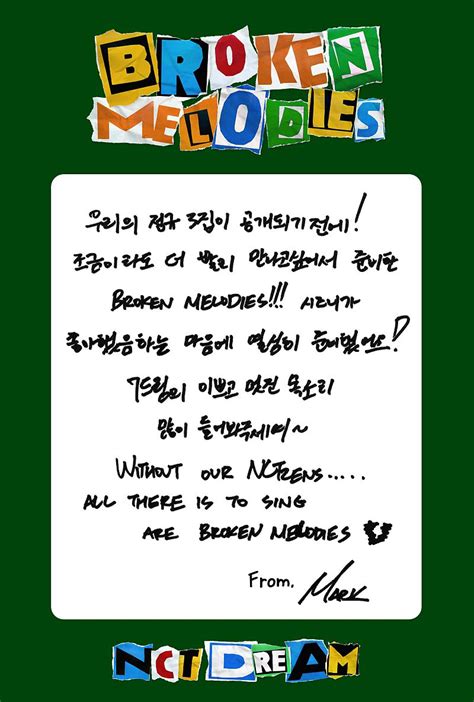 BROKEN
MELODIES
우리의 정규 3집이 공개되기 전에!
조금이라도 더 빨리 만나고싶어서 준비한
BROKEN MELODIES!!! 시즈니가
좋아했음하는 마음에 열심히 준비했어요!
7드림의 이쁘고 멋진 목소리
많이 들어봐주세여~
WITHOUT OUR NCTZENS.....
ALL THERE IS TO SING
ARE BROKEN MELODIES
From. MARK
NCT DREAM